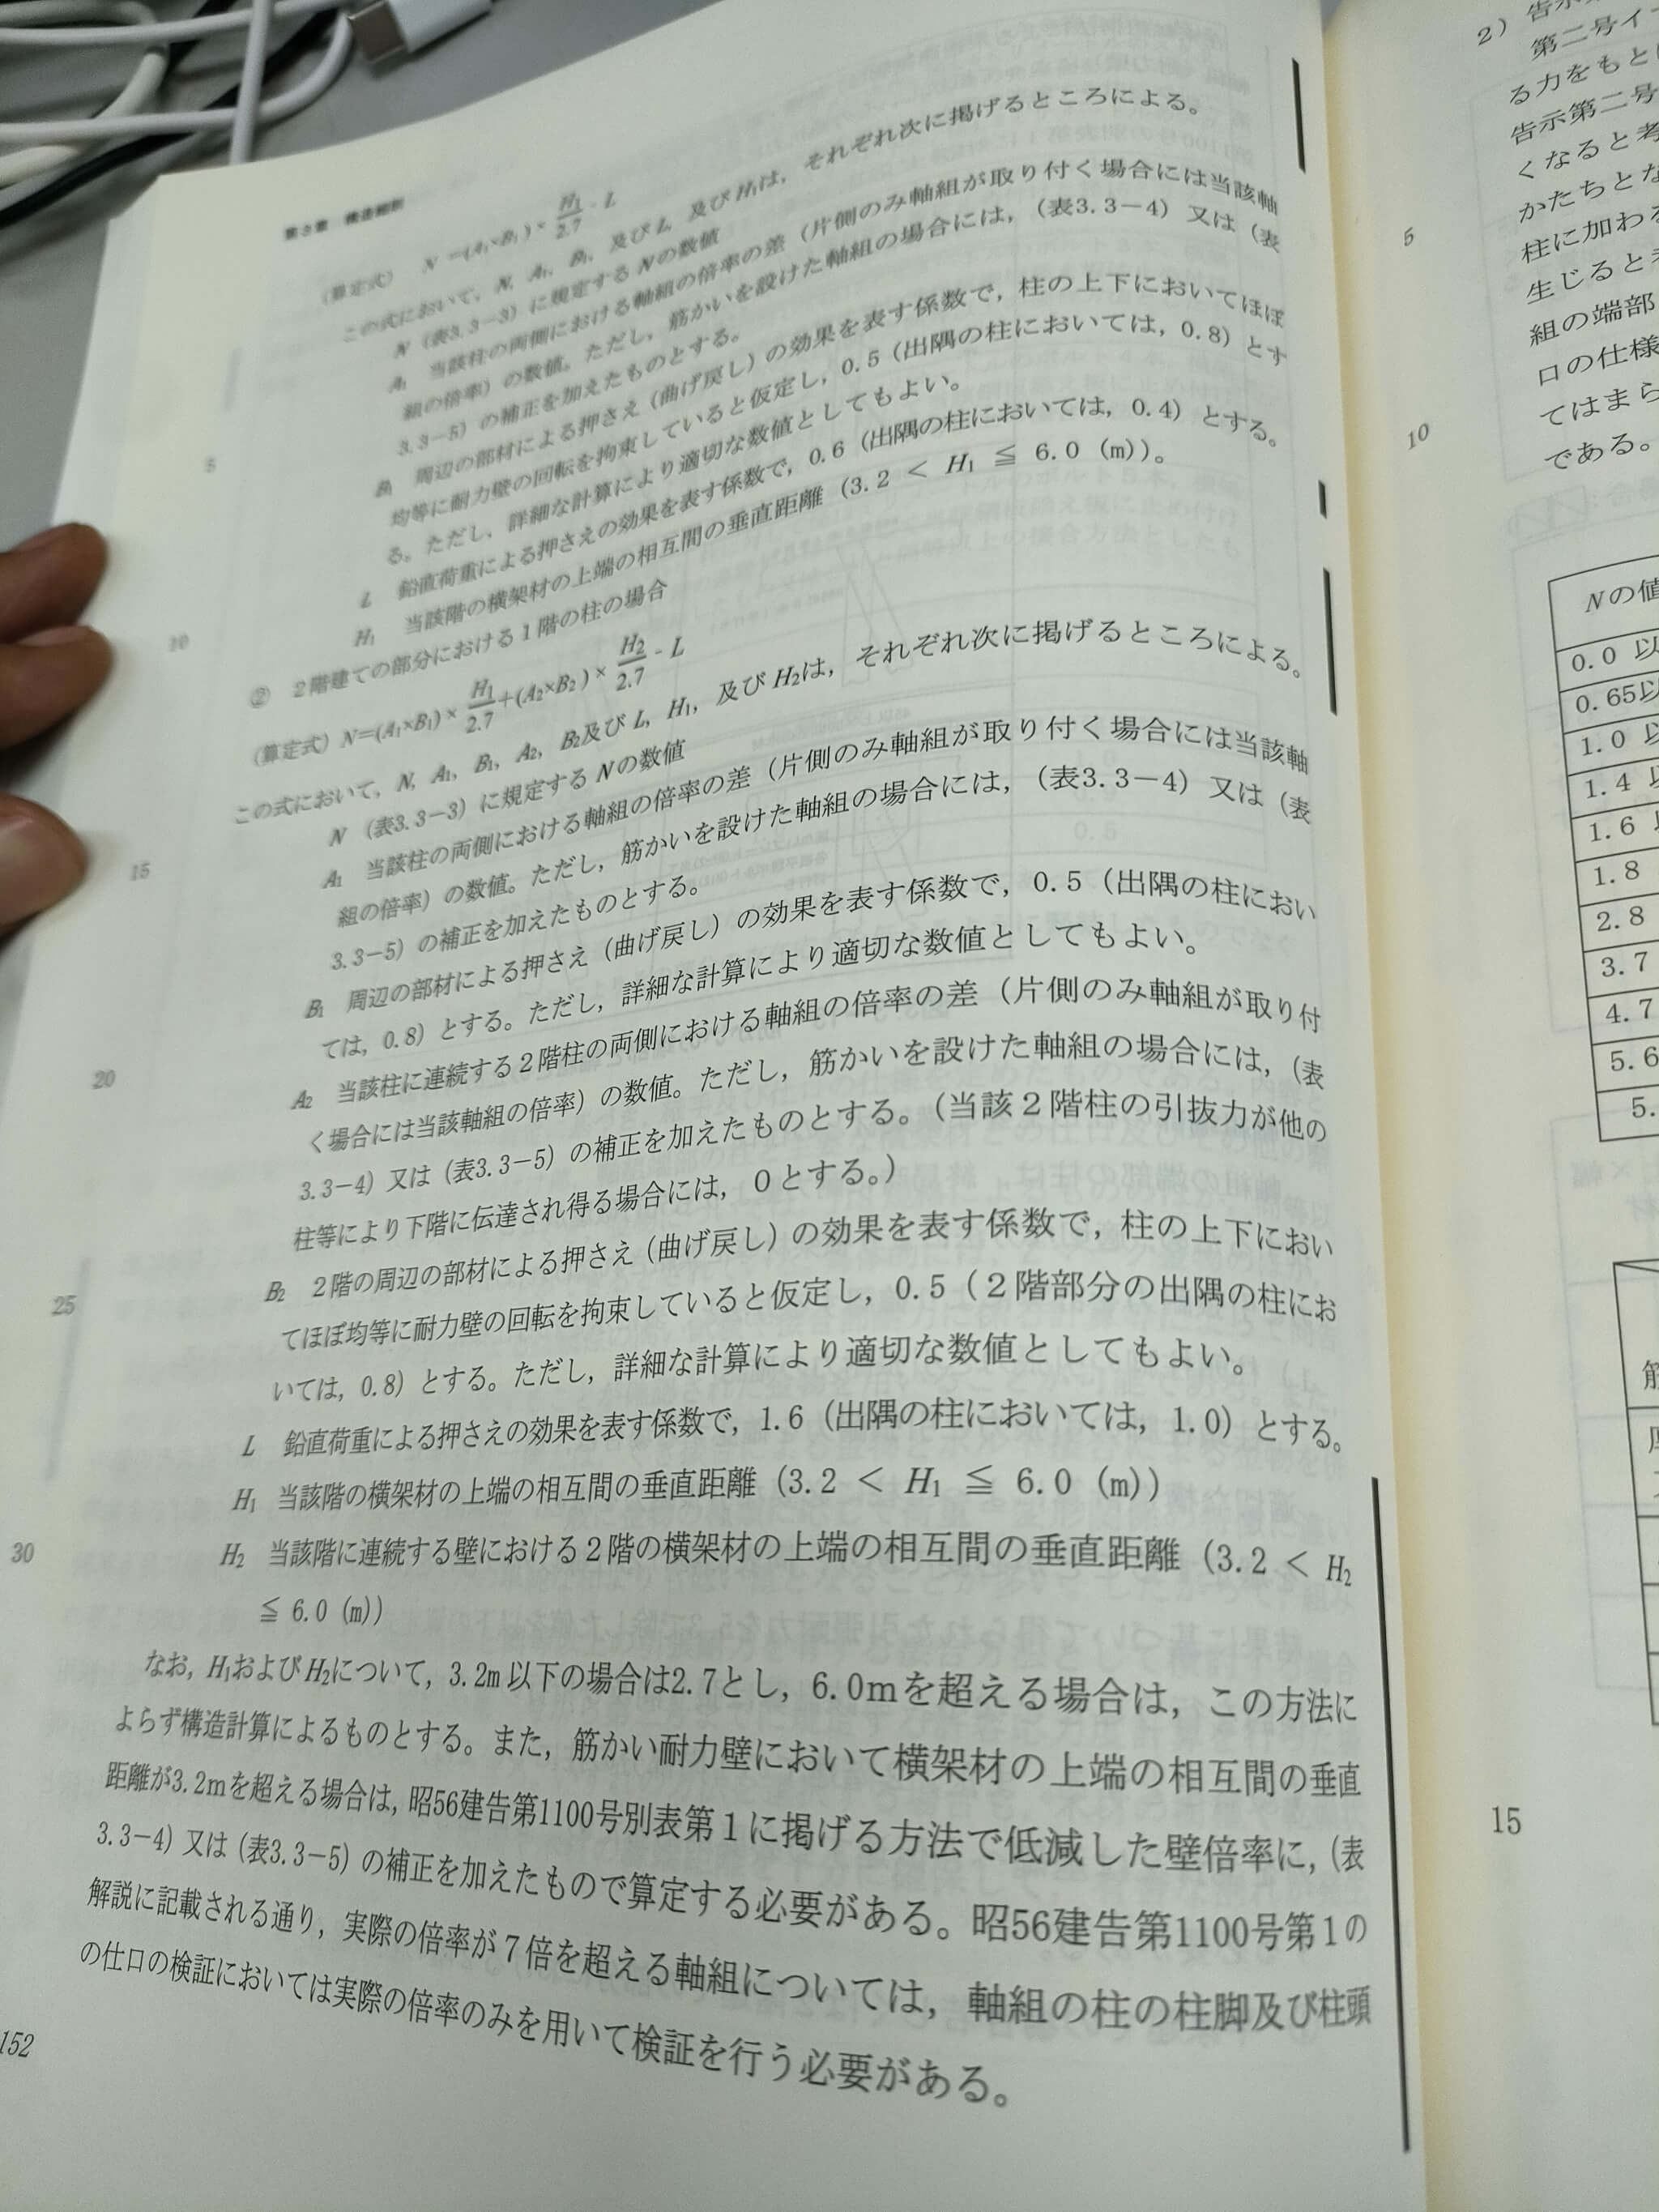 第3章 構造細則
(算定式) N =(A₁×B₁)× H₁/2.7 - L
この式において, N, A₁, B₁, 及び L, 及び H₁は, それぞれ次に掲げるところによる。
N (表3.3-3) に規定する Nの数値
A₁ 当該柱の両側における軸組の倍率の差 (片側のみ軸組が取り付く場合には当該軸
組の倍率) の数値。ただし, 筋かいを設けた軸組の場合には, (表3.3-4) 又は (表
3.3-5) の補正を加えたものとする。
B₁ 周辺の部材による押さえ (曲げ戻し) の効果を表す係数で, 柱の上下においてほぼ
均等に耐力壁の回転を拘束していると仮定し, 0.5 (出隅の柱においては, 0.8) とす
る。ただし, 詳細な計算により適切な数値としてもよい。
L 鉛直荷重による押さえの効果を表す係数で, 0.6 (出隅の柱においては, 0.4) とする。
H₁ 当該階の横架材の上端の相互間の垂直距離 (3.2 < H₁ ≦ 6.0 (m))。
② 2階建ての部分における1階の柱の場合
(算定式) N=(A₁×B₁)× H₁/2.7 +(A₂×B₂)× H₂/2.7 - L
この式において, N, A₁, B₁, A₂, B₂及び L, H₁, 及び H₂は, それぞれ次に掲げるところによる。
N (表3.3-3) に規定する Nの数値
A₁ 当該柱の両側における軸組の倍率の差 (片側のみ軸組が取り付く場合には当該軸
組の倍率) の数値。ただし, 筋かいを設けた軸組の場合には, (表3.3-4) 又は (表
3.3-5) の補正を加えたものとする。
B₁ 周辺の部材による押さえ (曲げ戻し) の効果を表す係数で, 0.5 (出隅の柱におい
ては, 0.8) とする。ただし, 詳細な計算により適切な数値としてもよい。
A₂ 当該柱に連続する2階柱の両側における軸組の倍率の差 (片側のみ軸組が取り付
く場合には当該軸組の倍率) の数値。ただし, 筋かいを設けた軸組の場合には, (表
3.3-4) 又は (表3.3-5) の補正を加えたものとする。(当該2階柱の引抜力が他の
柱等により下階に伝達され得る場合には, 0とする。)
B₂ 2階の周辺の部材による押さえ (曲げ戻し) の効果を表す係数で, 柱の上下におい
てほぼ均等に耐力壁の回転を拘束していると仮定し, 0.5 (2階部分の出隅の柱にお
いては, 0.8) とする。ただし, 詳細な計算により適切な数値としてもよい。
L 鉛直荷重による押さえの効果を表す係数で, 1.6 (出隅の柱においては, 1.0) とする。
H₁ 当該階の横架材の上端の相互間の垂直距離 (3.2 < H₁ ≦ 6.0 (m))
H₂ 当該階に連続する壁における2階の横架材の上端の相互間の垂直距離 (3.2 < H₂
≦ 6.0 (m))
なお, H₁およびH₂について, 3.2m以下の場合は2.7とし, 6.0mを超える場合は, この方法に
よらず構造計算によるものとする。また, 筋かい耐力壁において横架材の上端の相互間の垂直
距離が3.2mを超える場合は, 昭56建告第1100号別表第1に掲げる方法で低減した壁倍率に, (表
3.3-4) 又は (表3.3-5) の補正を加えたもので算定する必要がある。昭56建告第1100号第1の
解説に記載される通り, 実際の倍率が7倍を超える軸組については, 軸組の柱の柱脚及び柱頭
の仕口の検証においては実際の倍率のみを用いて検証を行う必要がある。
5
10
15
20
25
30
152
2) 告示
第二号イ
る力をもと
告示第二号
くなると考
かたちとな
柱に加わる
生じると
組の端部
口の仕様
てはまら
である。
5
10
15
Nの値
0.0 以
0.65以
1.0 以
1.4 以
1.6
1.8
2.8
3.7
4.7
5.6
5.
筋